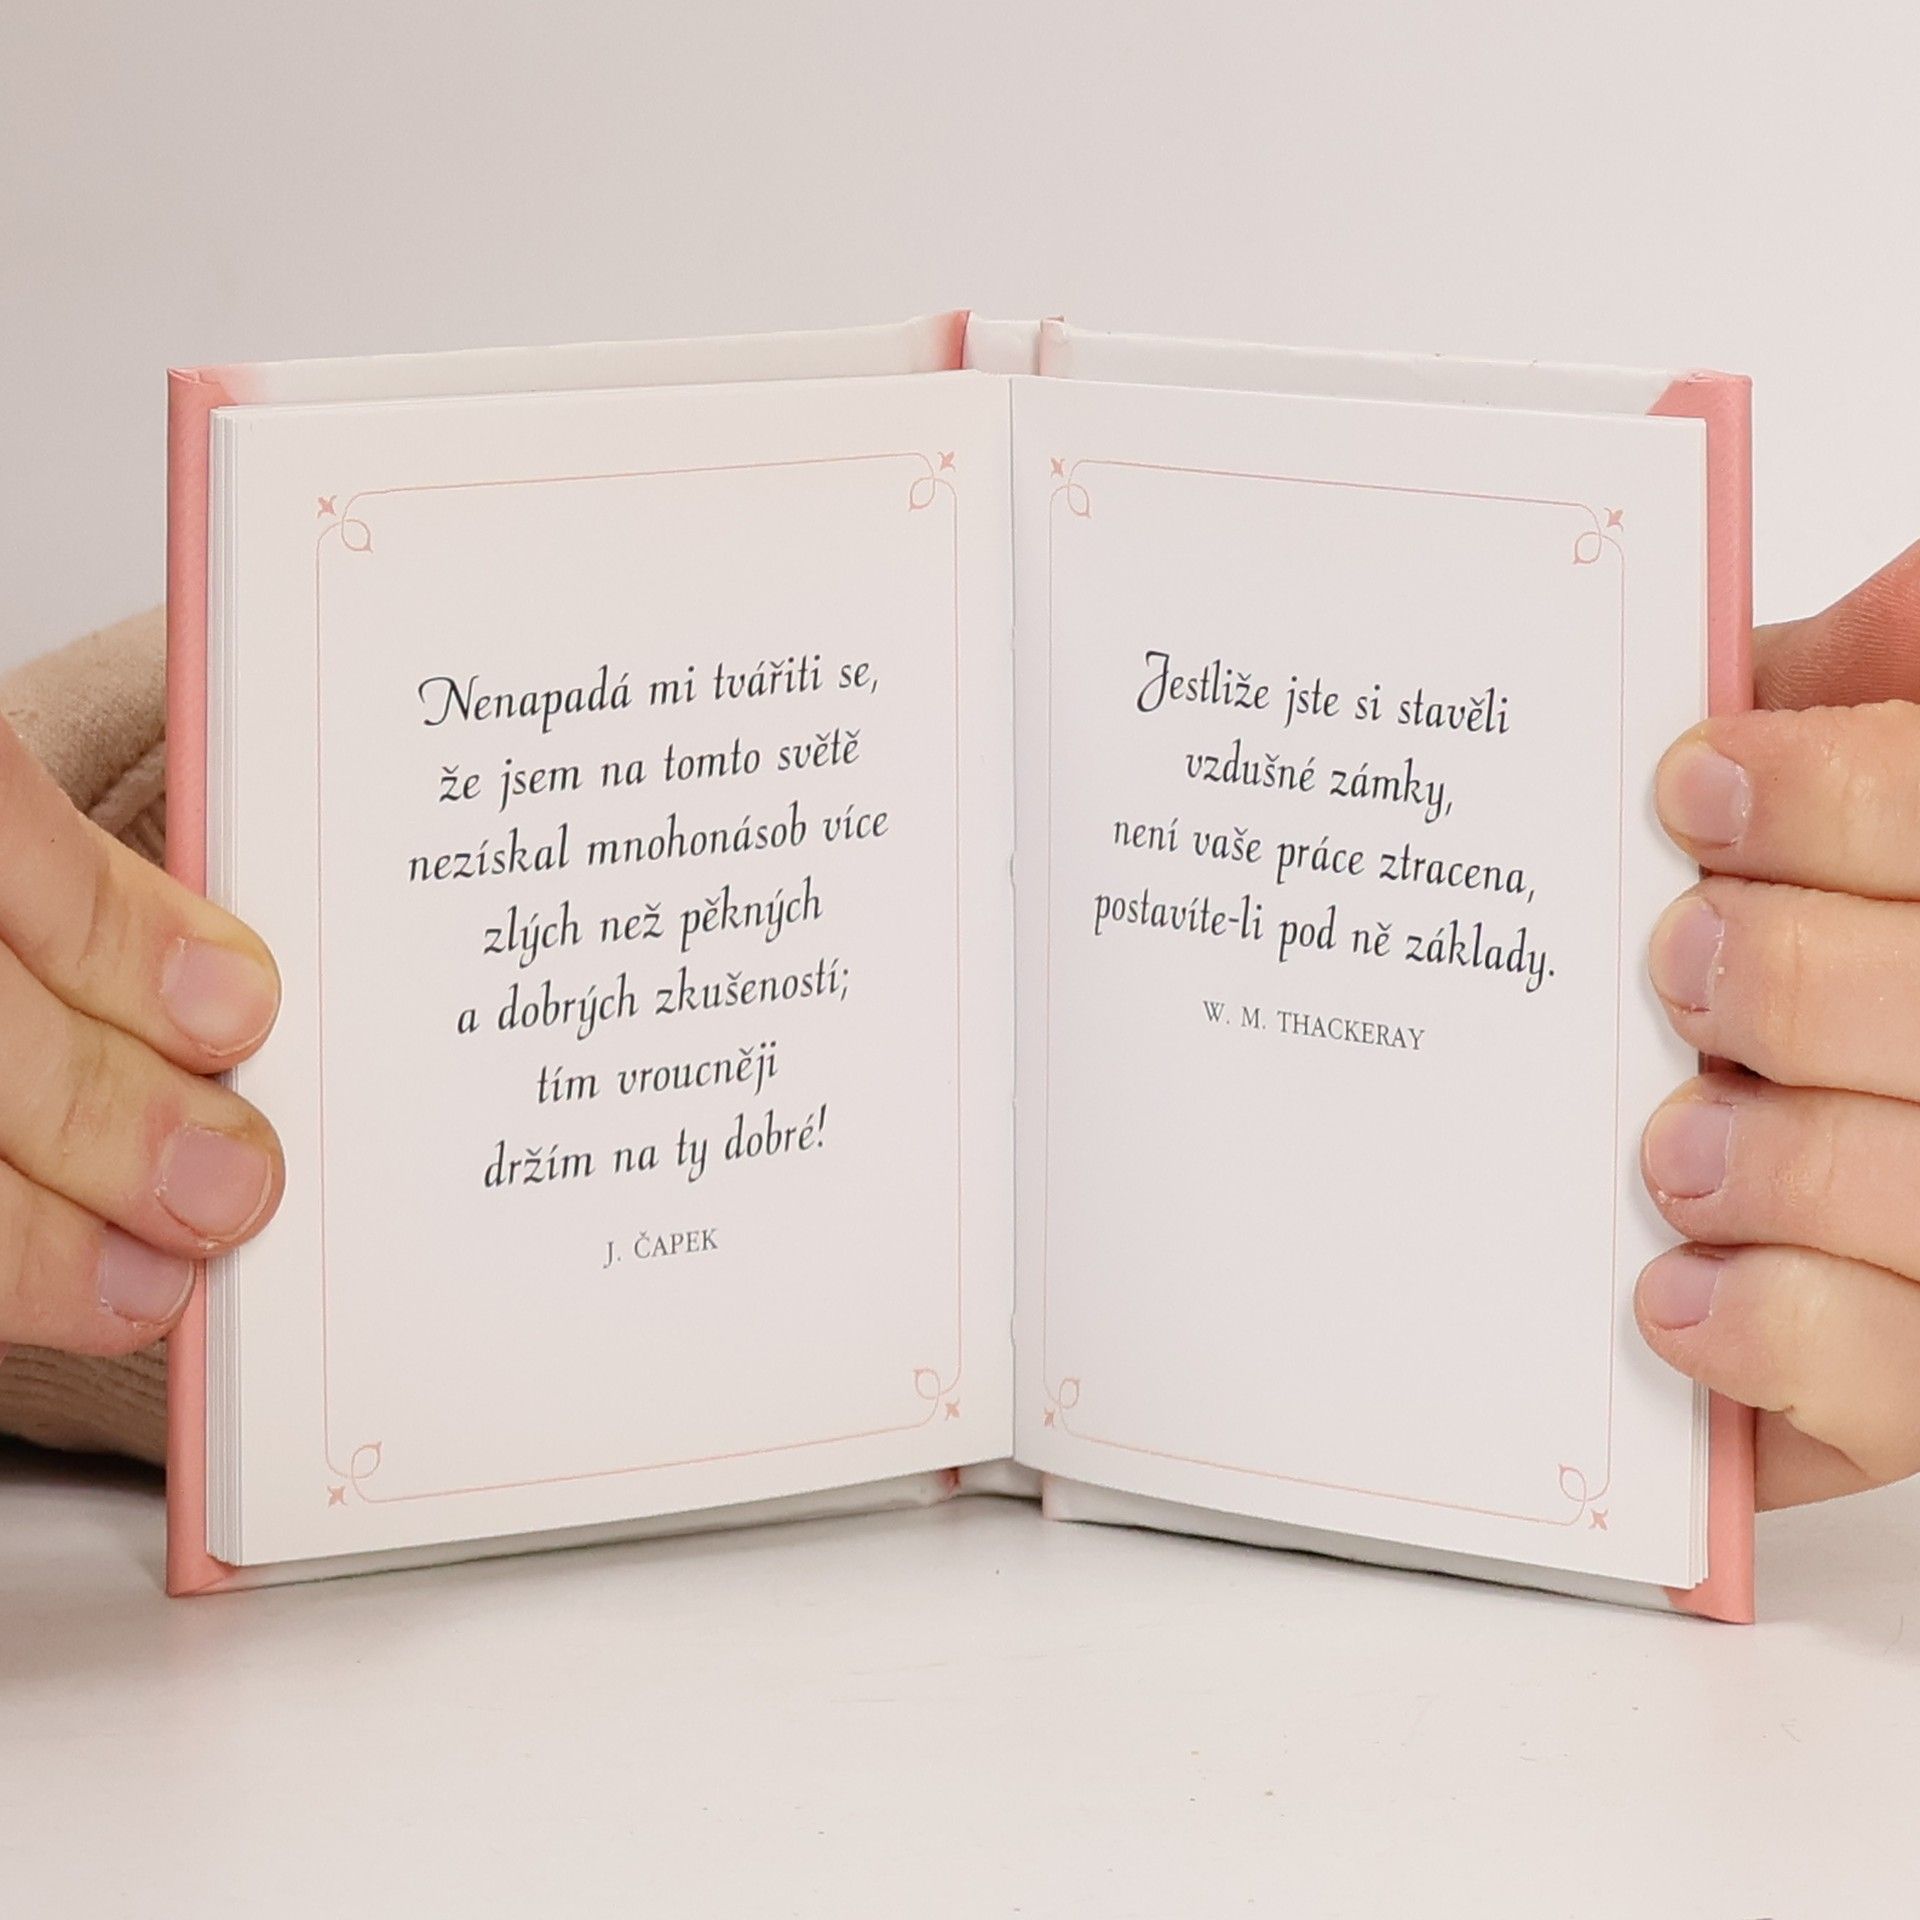 Nenapadá mi tvářiti se,
že jsem na tomto světě
nezískal mnohonásob více
zlých než pěkných
a dobrých zkušeností;
tím vroucněji
držím na ty dobré!
J. ČAPEK
Jestliže jste si stavěli
vzdušné zámky,
není vaše práce ztracena,
postavíte-li pod ně základy.
W. M. THACKERAY